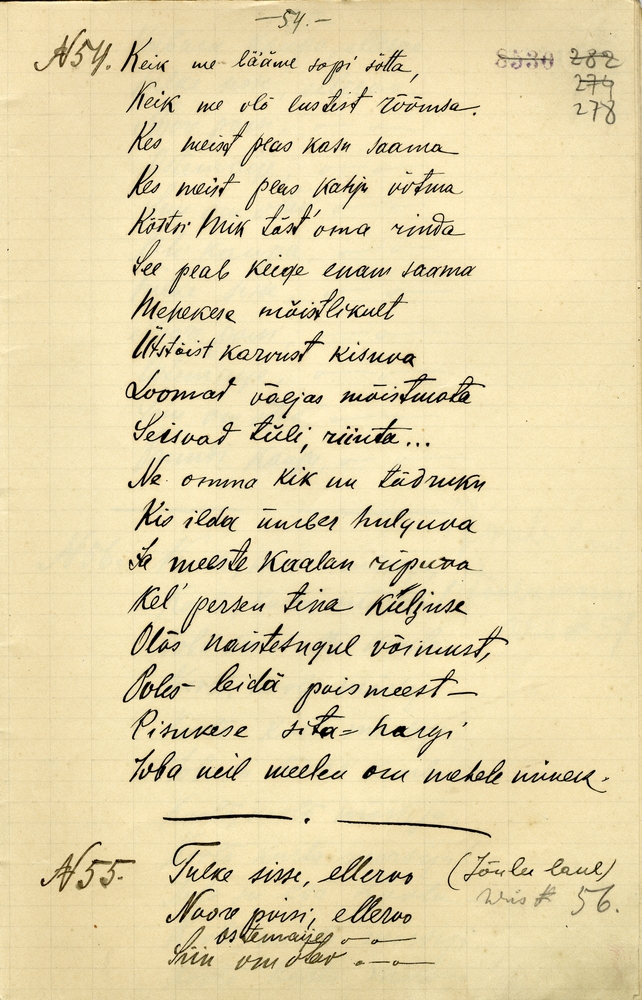 -54.-
N54. Keik me lääme sopi sõtta,
8530 282
274
278
Keik me olõ lustist rõõmsa.
Kes meist peas kasu saama
Kes meist peas kahju võtma
Köstri Mik tõst' oma rinda
See peab keige enam saama
Mehekese mõistlikult
Ütstõist karvust kisuva
Loomad väljas mõistmata
Seisvad tüli, riinta...
Ne omma kik nu tüdruku
Kis ilda ümber hulguva
Ja meeste kaalan ripuva
Kel' persen tina küljuse
Olõs naistesugul võimust,
Poles leidä poismeest—
Pisukese sita=hargi
Joba neil meelen om mehele minek.
N55. Tulke sisse, ellervo (Jõulu laul)
Noore poisi, ellervo 56.
Siin om